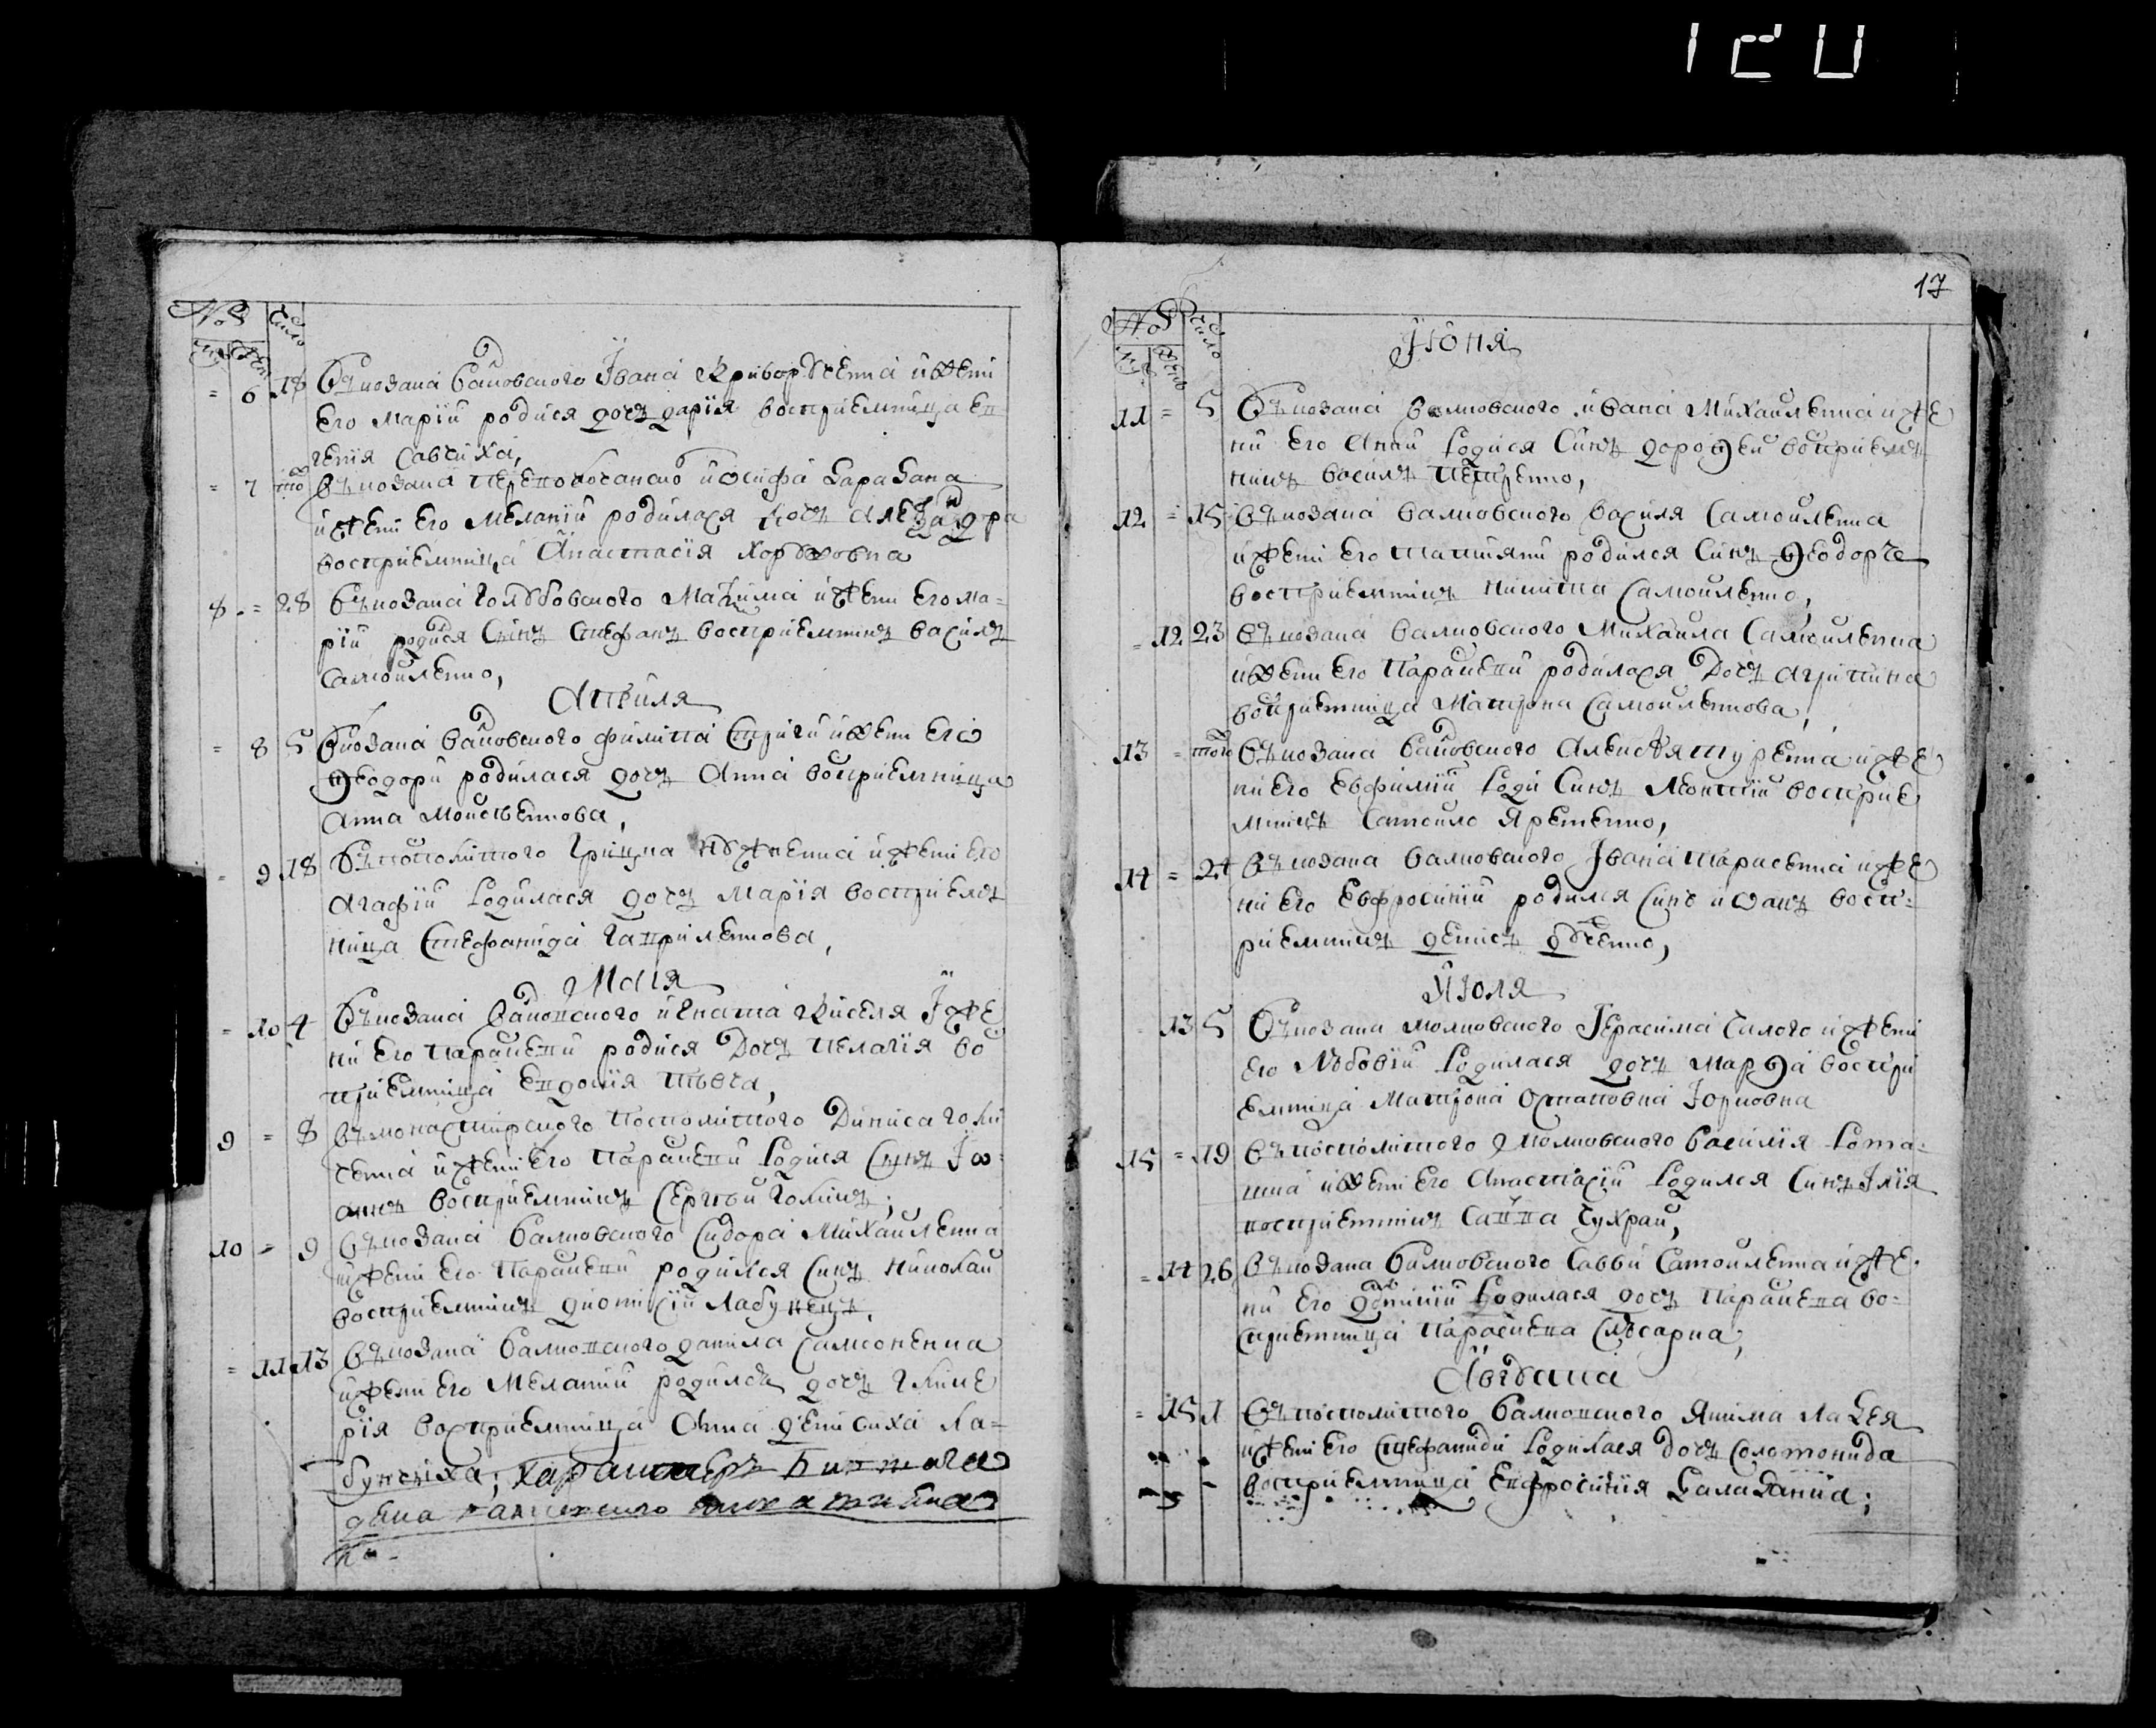 17
№ число
муж жен
= 6 18 Въ козака Балковского Івана Криворученка и жени
его Маріи родися дочъ Дарія восприемница Ев
генія Савчиха,
= 7 того Въ козака Переволочанско Иосифа Барабана
и жени его Меланіи родилася дочъ Александра
восприемница Анастасія
8 = 28 Въ козака Голубовского Максима и жени его Ма=
ріи родися синъ Стефанъ восприемникъ Василъ
Самойленко,
Апреля
= 8 5 Въ козака Балковского Филипа Стриги и жени его
Ѳеодори родилася дочъ Анна восприемница
Анна Мойсѣенкова,
= 9 18 Въ посполитого Грицка и жени его
Агафіи родилася дочъ Марія восприем
ница Стефанида Гавриленкова,
Маія
= 10 4 Въ козака Балковского Игната Киселя і же
ни его Параскеви родися дочъ Пелагія во
приемница Евдокія
9 = 8 Въ монастирского посполитого Дениса Голи
ченка и жени его Параскеви родися синъ Іо
анъ восприемникъ Сергѣй Голикъ;
10 = 9 Въ козака Балковского Сидора Михайленка
и жени его Параскеви родился синъ Николай
восприемникъ Дионисій Лабунецъ,
= 11 13 Въ козака Балковского Данила Самсоненка
и жени его Меланіи родилась дочъ Глике
рія восприемница Анна Денисиха Ла=
бунсиха;
№ число
муж жен
Іюня
11 = 5 Въ козака Балковского Ивана Михайленка и же
ни его Анни родися синъ Дороѳей восприем
никъ Василъ Петренко,
12 = 15 Въ козака Балковского Василя Самойленка
и жени его Татияни родился синъ Ѳеодоръ
восприемникъ Никита Самойленко,
= 12 23 Въ козака Балковского Михайла Самойленка
и жени его Параскеви родилася дочъ Агрипина
восприемница Матрона Самойленкова,
13 = того Въ козака Балковского и же
ни его Евфиміи роди синъ Леонтій восприе
мникъ Самойло Яременко,
14 = 24 Въ козака Балковского Івана Тарасенка и же
ни его Евфросиніи родился синъ Иоанъ восп=
риемникъ Денисъ Дученко,
Июля
= 13 5 Въ козака Молковского Герасима и жени
его Любовіи родилася дочъ Марѳа воспри
емница Матрона Остаповна
15 = 19 Въ посполитого Молковского Василія Рома=
шка и жени его Анастасіи родился синъ Ілія
восприемникъ Савва Чухрай,
= 14 26 Въ козака Балковского Савви Самойленка и же=
ни его Домникіи родилася дочъ Параскева во=
сприемница Параскева Слѣсарка,
Августа
= 15 1 Въ посполитого Балковского Якима
и жени его Стефаниди родилася дочъ Соломонида
восприемница Евфросинія